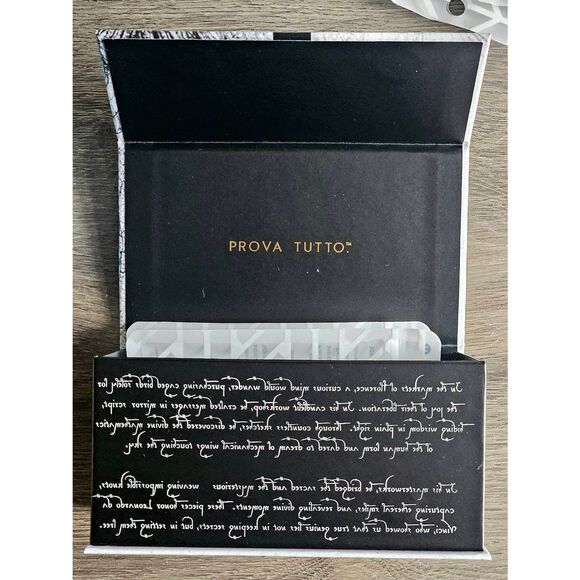 PROVA TUTTO™
In the markets of Florence, a curious mind would wander, purchasing caged birds solely for
the joy of their liberation. In his candlelit workshop, he crafted messages in mirror script,
hiding wisdom in plain sight. Through countless sketches, he discovered the divine mathematics
of the human form and dared to dream of mechanical wings touching the sky.
In his masterworks, he bridged the sacred and the mysterious weaving impossible knots,
capturing ethereal smiles, and revealing divine moments. These pieces honor Leonardo da
Vinci, who showed us that true genius lies not in keeping secrets, but in setting them free.